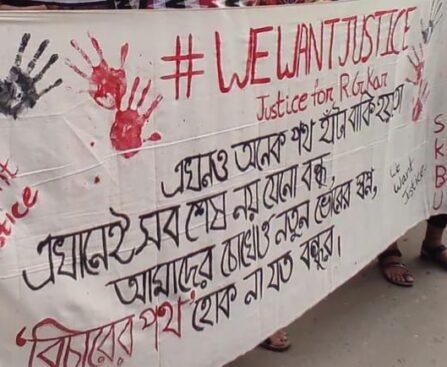 #WE WANT JUSTICE
Justice for R.G.Kar
এখনও অনেক পথ হাঁটা বাকি হয়তো
এখানেই সব শেষ নয় জেনো বন্ধু,
আমাদের চোখেও নতুন ভোরের স্বপ্ন,
'বিচারের পথ' হোক না যত বন্ধুর।
We
Want
Justice.
SKBU